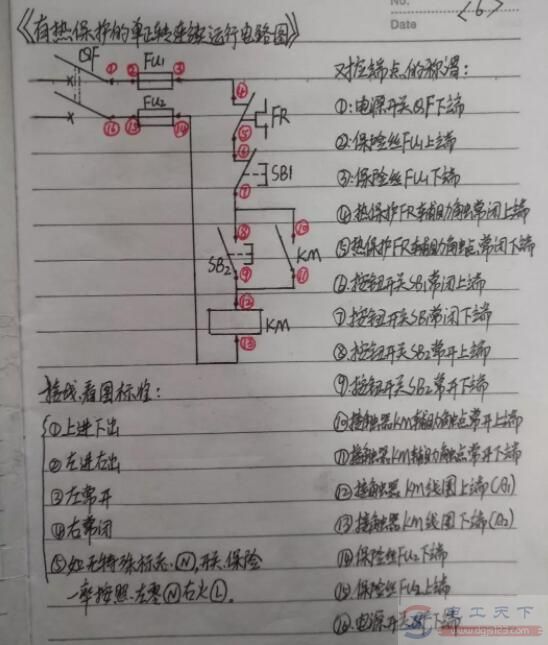 No.
Date
<6>
《有热保护的单正转连续运行电路图》
QF ① ② FU1 ③
FU2
⑯ ⑮ ⑭
④
FR
⑤
⑥
SB1
⑦
⑧ ⑩
SB2 KM
⑨ ⑪
⑫
KM
⑬
对控端点的称谓：
①:电源开关QF下端
②:保险丝FU1上端
③:保险丝FU1下端
④热保护FR辅助触常闭上端
⑤热保护FR辅助触点常闭下端
⑥按钮开关SB1常闭上端
⑦按钮开关SB1常闭下端
⑧按钮开关SB2常开上端
⑨按钮开关SB2常开下端
⑩接触器KM辅助触点常开上端
⑪接触器KM辅助触点常开下端
⑫接触器KM线圈上端(A1)
⑬接触器KM线圈下端(A2)
⑭保险丝FU2下端
⑮保险丝FU2上端
⑯电源开关QF下端
接线,看图标准：
①上进下出
②左进右出
③左常开
④右常闭
⑤如无特殊标志,Ⓝ,开关.保险
一率按照.左零Ⓝ右火Ⓛ.
电工天下
www.dgjs123.com